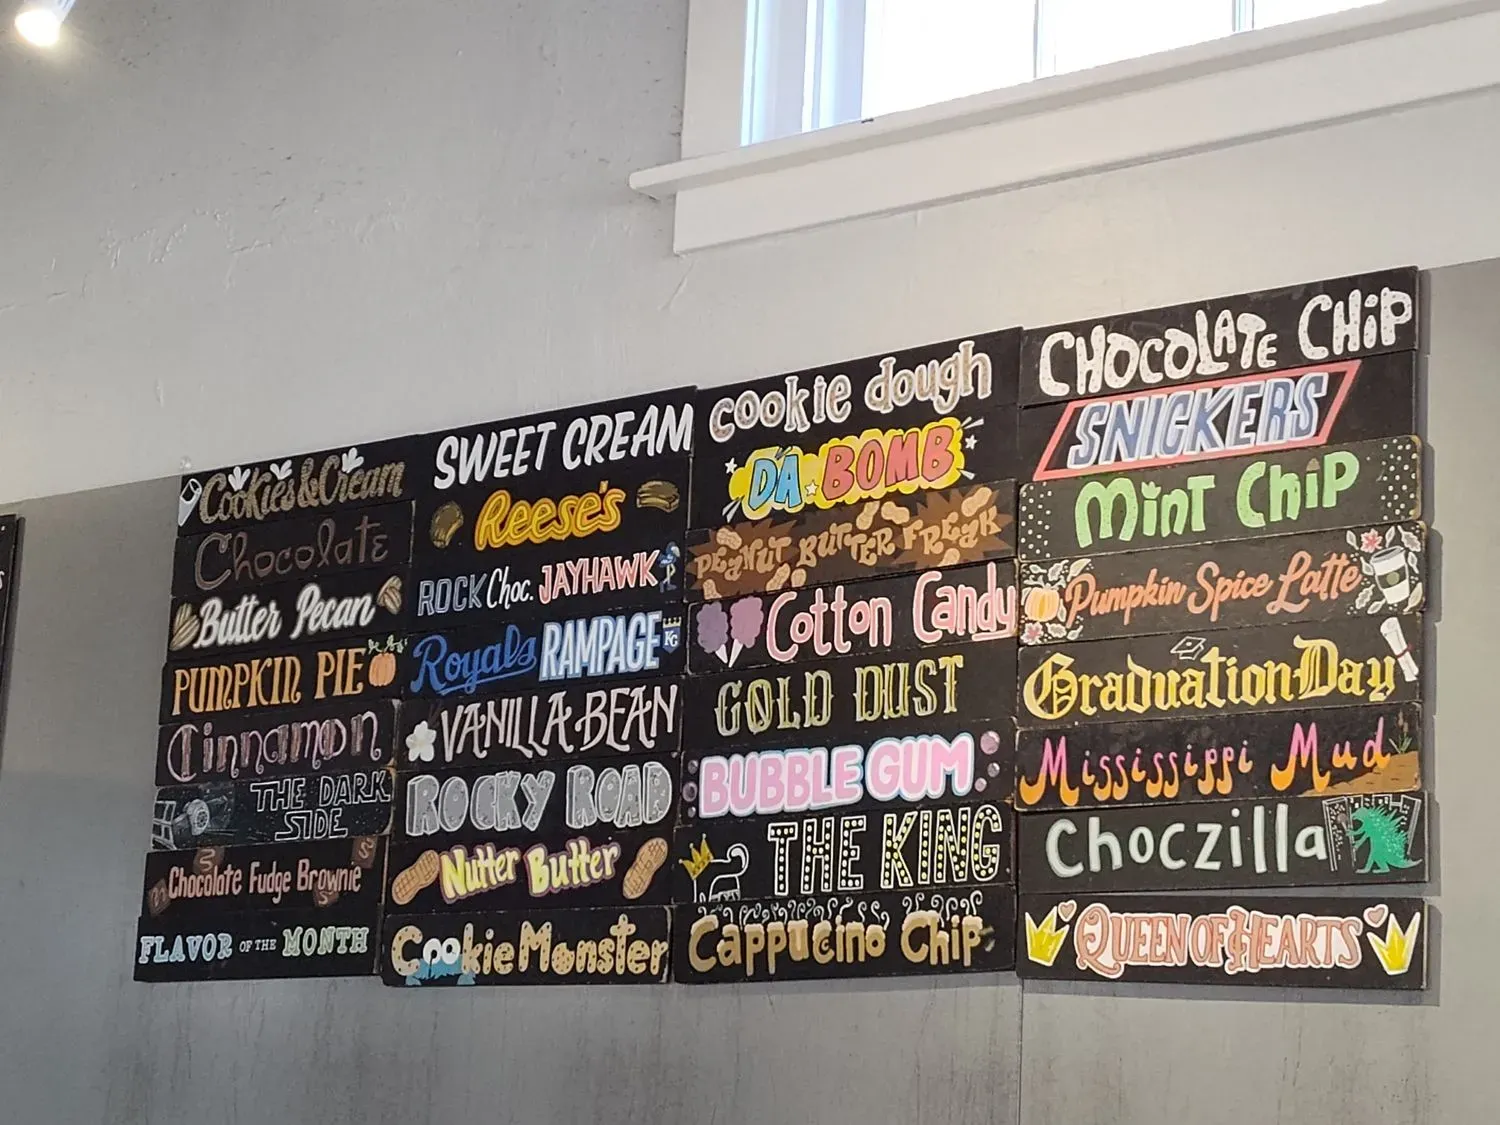 Cookies & Cream
Chocolate
Butter Pecan
PUMPKIN PIE
Cinnamon
THE DARK
SIDE
Chocolate Fudge Brownie
FLAVOR OF THE MONTH
SWEET CREAM
Reese's
ROCK Choc. JAYHAWK
Royals RAMPAGE KC
VANILLA BEAN
ROCKY ROAD
Nutter Butter
Cookie Monster
cookie dough
DA BOMB
PEANUT BUTTER FREAK
Cotton Candy
GOLD DUST
BUBBLE GUM
THE KING
Cappucino Chip
CHOCOLATE CHIP
SNICKERS
Mint Chip
Pumpkin Spice Latte
Graduation Day
Mississippi Mud
Choczilla
QUEEN OF HEARTS